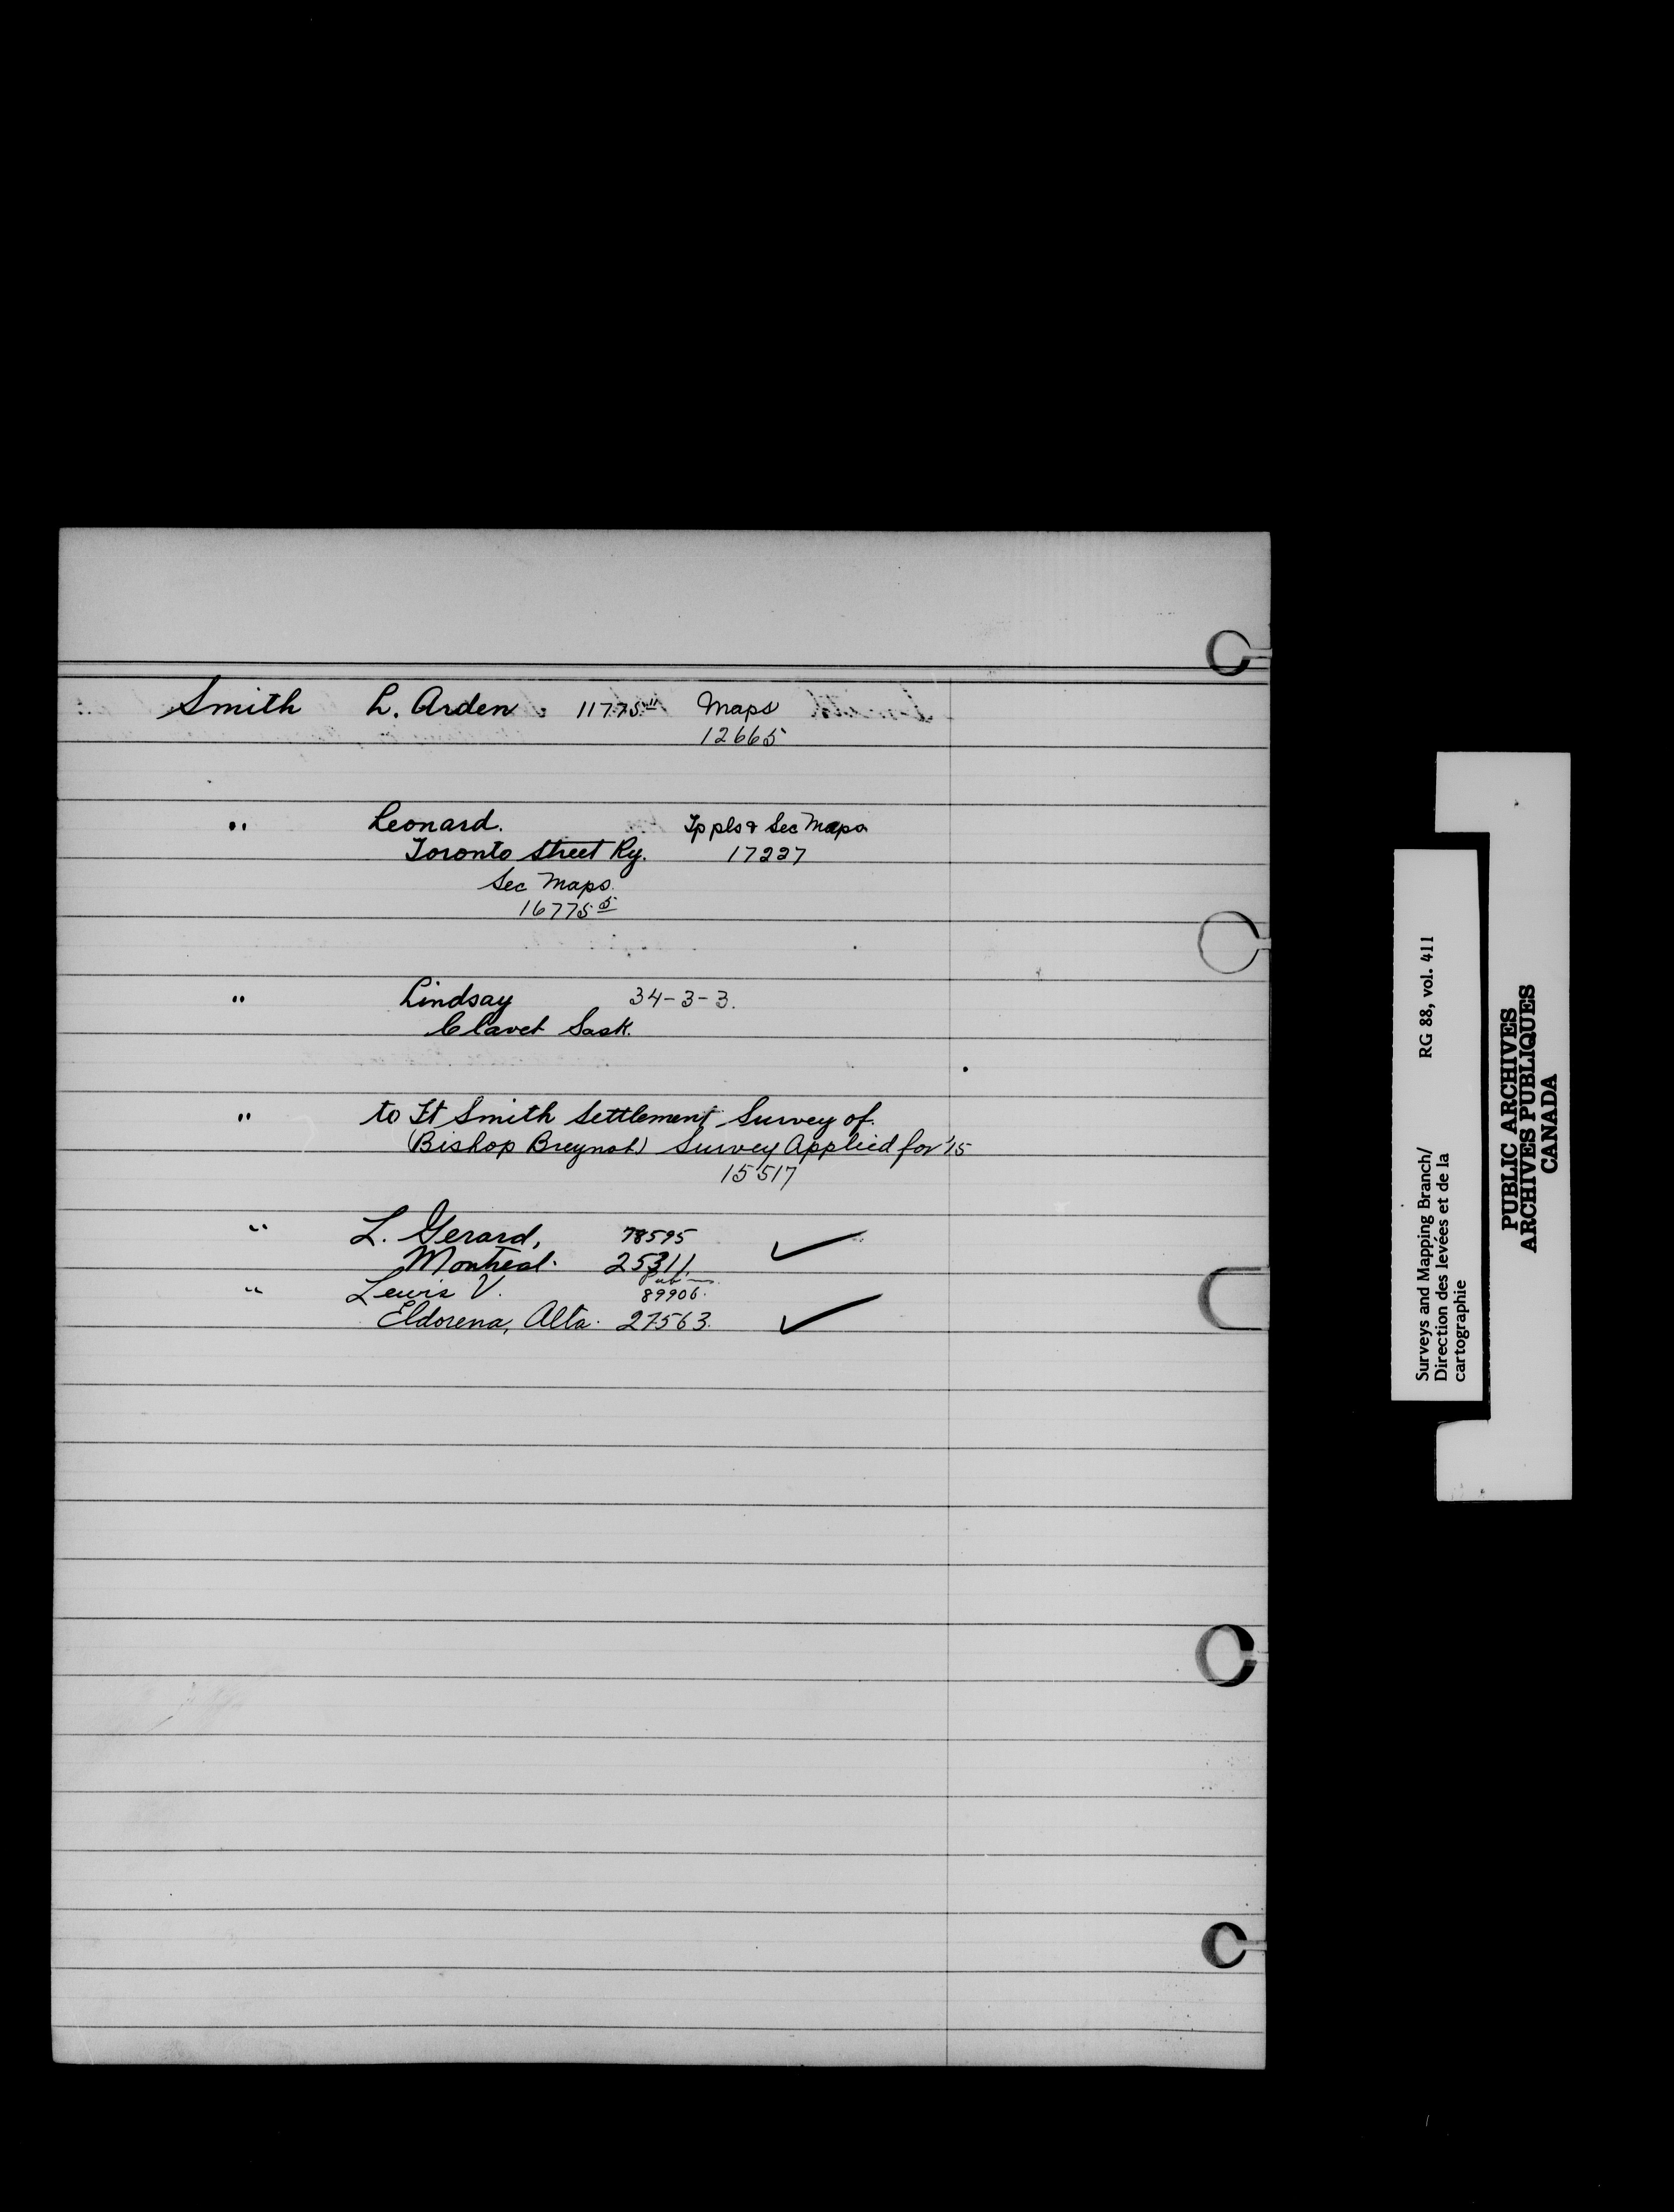 Smith L. Arden 11775 11 Maps
12665
" Leonard. Tp pls & Sec Maps
Toronto Street Ry. 17227
Sec Maps.
16775 5
" Lindsay 34-3-3.
Clavet Sask.
" to Ft Smith Settlement Survey of.
(Bishop Breynat) Survey Applied for '15
15517
" L. Gerard, 78595 ✓
Montreal. 25311
" Lewis V. 89906.
Eldorena, Alta. 27563. ✓
Surveys and Mapping Branch/ RG 88, vol. 411
Direction des levées et de la
cartographie
PUBLIC ARCHIVES
ARCHIVES PUBLIQUES
CANADA